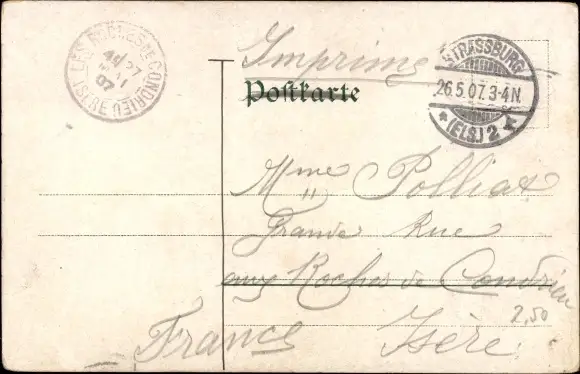 LES ROCHES DE CONDRIEU
27
MAI
07
ISÈRE
Imprimé
STRASSBURG
26.5.07.3-4N.
* (ELS.) 2 *
Postkarte
Mme Polliat
Grande Rue
aux Roches de Condrieu
2,50
France Isère